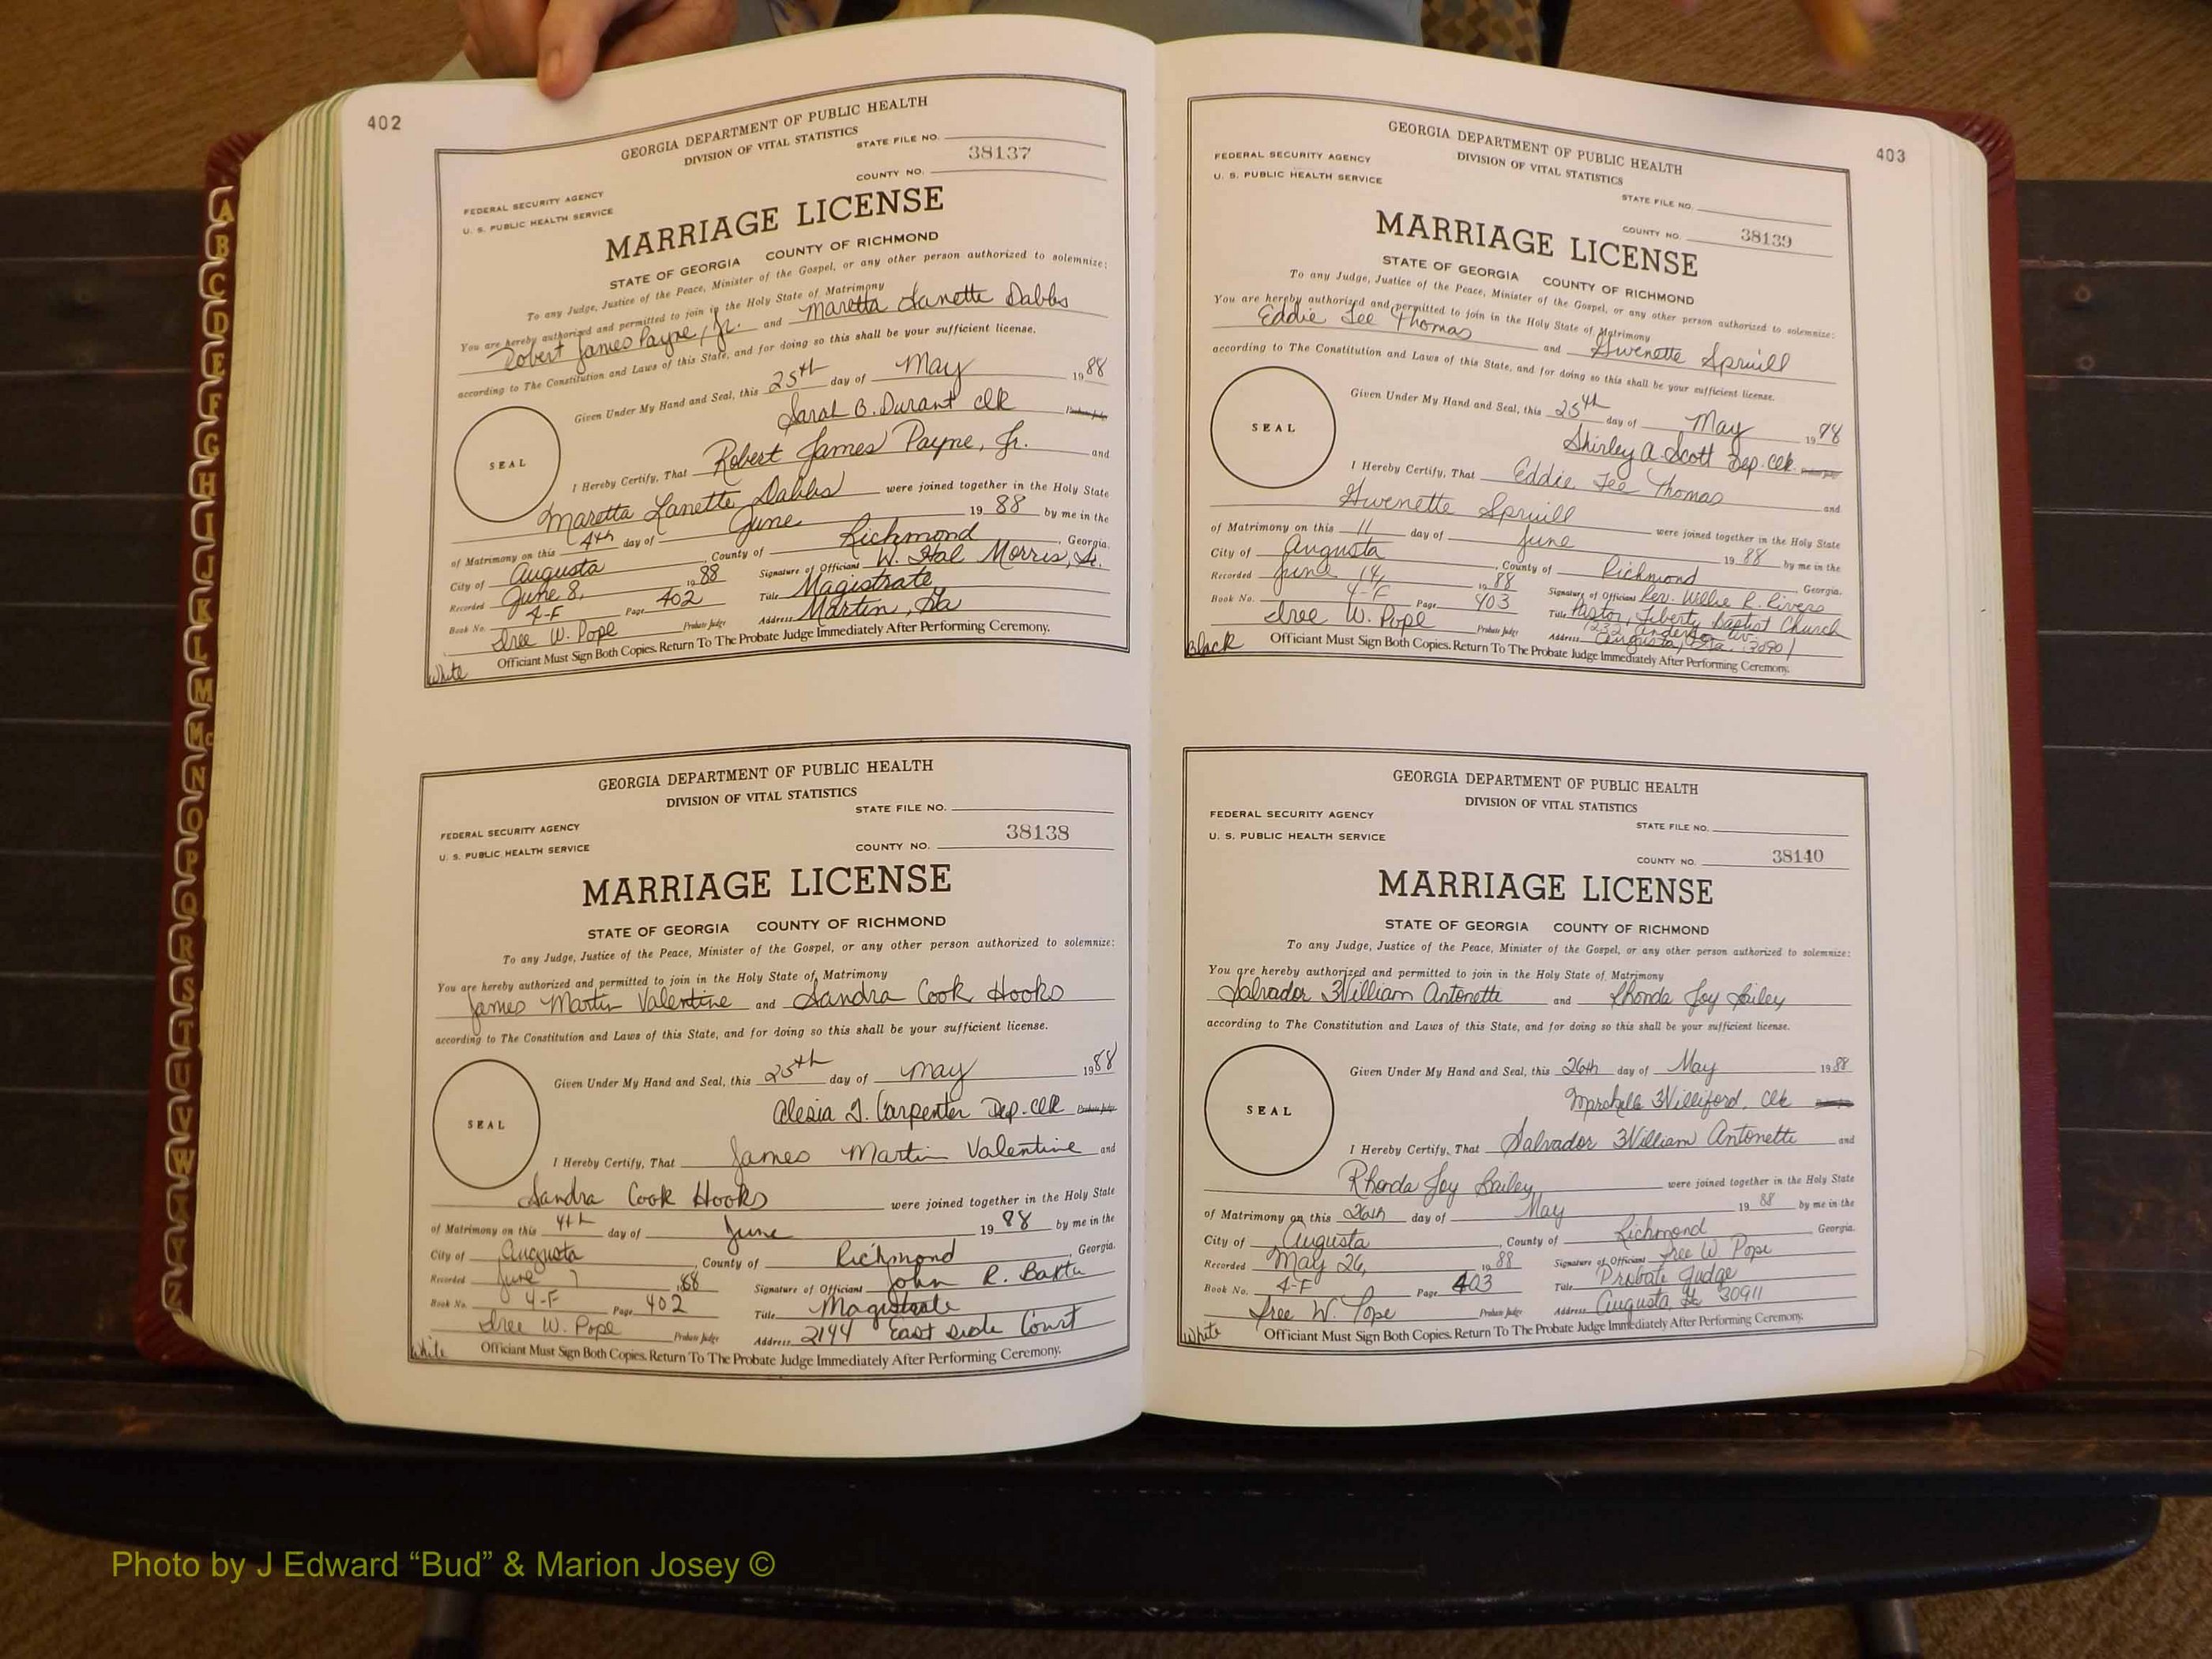 402
GEORGIA DEPARTMENT OF PUBLIC HEALTH
DIVISION OF VITAL STATISTICS
STATE FILE NO.
38137
COUNTY NO.
FEDERAL SECURITY AGENCY
U. S. PUBLIC HEALTH SERVICE
MARRIAGE LICENSE
STATE OF GEORGIA COUNTY OF RICHMOND
To any Judge, Justice of the Peace, Minister of the Gospel, or any other person authorized to solemnize:
You are hereby authorized and permitted to join in the Holy State of Matrimony
Robert James Payne, Jr. and Maretta Lanette Dabbs
according to The Constitution and Laws of this State, and for doing so this shall be your sufficient license.
Given Under My Hand and Seal, this 25th day of May 1988
Sarah B. Durant Clk Probate Judge
SEAL
I Hereby Certify, That Robert James Payne, Jr. and
Maretta Lanette Dabbs were joined together in the Holy State
of Matrimony on this 4th day of June 1988 by me in the
City of Augusta, County of Richmond, Georgia.
Recorded June 8, 1988 Signature of Officiant W. Hal Morris, Sr.
Book No. 4-F Page 402 Title Magistrate
Isree W. Pope Probate Judge Address Martin, Ga
White Officiant Must Sign Both Copies. Return To The Probate Judge Immediately After Performing Ceremony.
GEORGIA DEPARTMENT OF PUBLIC HEALTH
DIVISION OF VITAL STATISTICS
STATE FILE NO.
FEDERAL SECURITY AGENCY
38138
U. S. PUBLIC HEALTH SERVICE
COUNTY NO.
MARRIAGE LICENSE
STATE OF GEORGIA COUNTY OF RICHMOND
To any Judge, Justice of the Peace, Minister of the Gospel, or any other person authorized to solemnize:
You are hereby authorized and permitted to join in the Holy State of Matrimony
James Martin Valentine and Sandra Cook Hooks
according to The Constitution and Laws of this State, and for doing so this shall be your sufficient license.
Given Under My Hand and Seal, this 25th day of May 1988
Alesia Carpenter Dep. Clk Probate Judge
SEAL
I Hereby Certify, That James Martin Valentine and
Sandra Cook Hooks were joined together in the Holy State
of Matrimony on this 4th day of June 1988 by me in the
City of Augusta, County of Richmond, Georgia.
Recorded June 7 88 Signature of Officiant John R.
Book No. 4-F Page 402 Title Magistrate
Isree W. Pope Probate Judge Address 2144 East side Court
White Officiant Must Sign Both Copies. Return To The Probate Judge Immediately After Performing Ceremony.
403
GEORGIA DEPARTMENT OF PUBLIC HEALTH
DIVISION OF VITAL STATISTICS
FEDERAL SECURITY AGENCY
U. S. PUBLIC HEALTH SERVICE
STATE FILE NO.
COUNTY NO. 38139
MARRIAGE LICENSE
STATE OF GEORGIA COUNTY OF RICHMOND
To any Judge, Justice of the Peace, Minister of the Gospel, or any other person authorized to solemnize:
You are hereby authorized and permitted to join in the Holy State of Matrimony
Eddie Lee Thomas and Gwenette Spruill
according to The Constitution and Laws of this State, and for doing so this shall be your sufficient license.
Given Under My Hand and Seal, this 25th day of May 1988
Shirley A. Scott Dep. Clk. Probate Judge
SEAL
I Hereby Certify, That Eddie Lee Thomas and
Gwenette Spruill were joined together in the Holy State
of Matrimony on this 11 day of June 1988 by me in the
City of Augusta, County of Richmond, Georgia.
Recorded June 14, 1988 Signature of Officiant Rev. Willie R. Rivers
Book No. 4-F Page 403 Title Pastor, Liberty Baptist Church
Isree W. Pope Probate Judge Address 1232 Anderson Av. Augusta, Ga. 30901
Black Officiant Must Sign Both Copies. Return To The Probate Judge Immediately After Performing Ceremony.
GEORGIA DEPARTMENT OF PUBLIC HEALTH
DIVISION OF VITAL STATISTICS
FEDERAL SECURITY AGENCY
STATE FILE NO.
U. S. PUBLIC HEALTH SERVICE
COUNTY NO. 38140
MARRIAGE LICENSE
STATE OF GEORGIA COUNTY OF RICHMOND
To any Judge, Justice of the Peace, Minister of the Gospel, or any other person authorized to solemnize:
You are hereby authorized and permitted to join in the Holy State of Matrimony
Salvador William Antonetti and Rhonda Joy Bailey
according to The Constitution and Laws of this State, and for doing so this shall be your sufficient license.
Given Under My Hand and Seal, this 26th day of May 1988
Marshelle Williford, Clk
SEAL
I Hereby Certify, That Salvador William Antonetti and
Rhonda Joy Bailey were joined together in the Holy State
of Matrimony on this 26th day of May 1988 by me in the
City of Augusta, County of Richmond Georgia.
Recorded May 26, 1988 Signature of Officiant Isree W Pope
Book No. 4-F Page 403 Title Probate Judge
Isree W. Pope Probate Judge Address Augusta, Ga 30911
White Officiant Must Sign Both Copies. Return To The Probate Judge Immediately After Performing Ceremony.
A
B
C
D
E
F
G
H
I
J
K
L
M
Mc
N
O
P
Q
R
S
T
U
V
W
X
Y
Z
Photo by J Edward “Bud” & Marion Josey ©